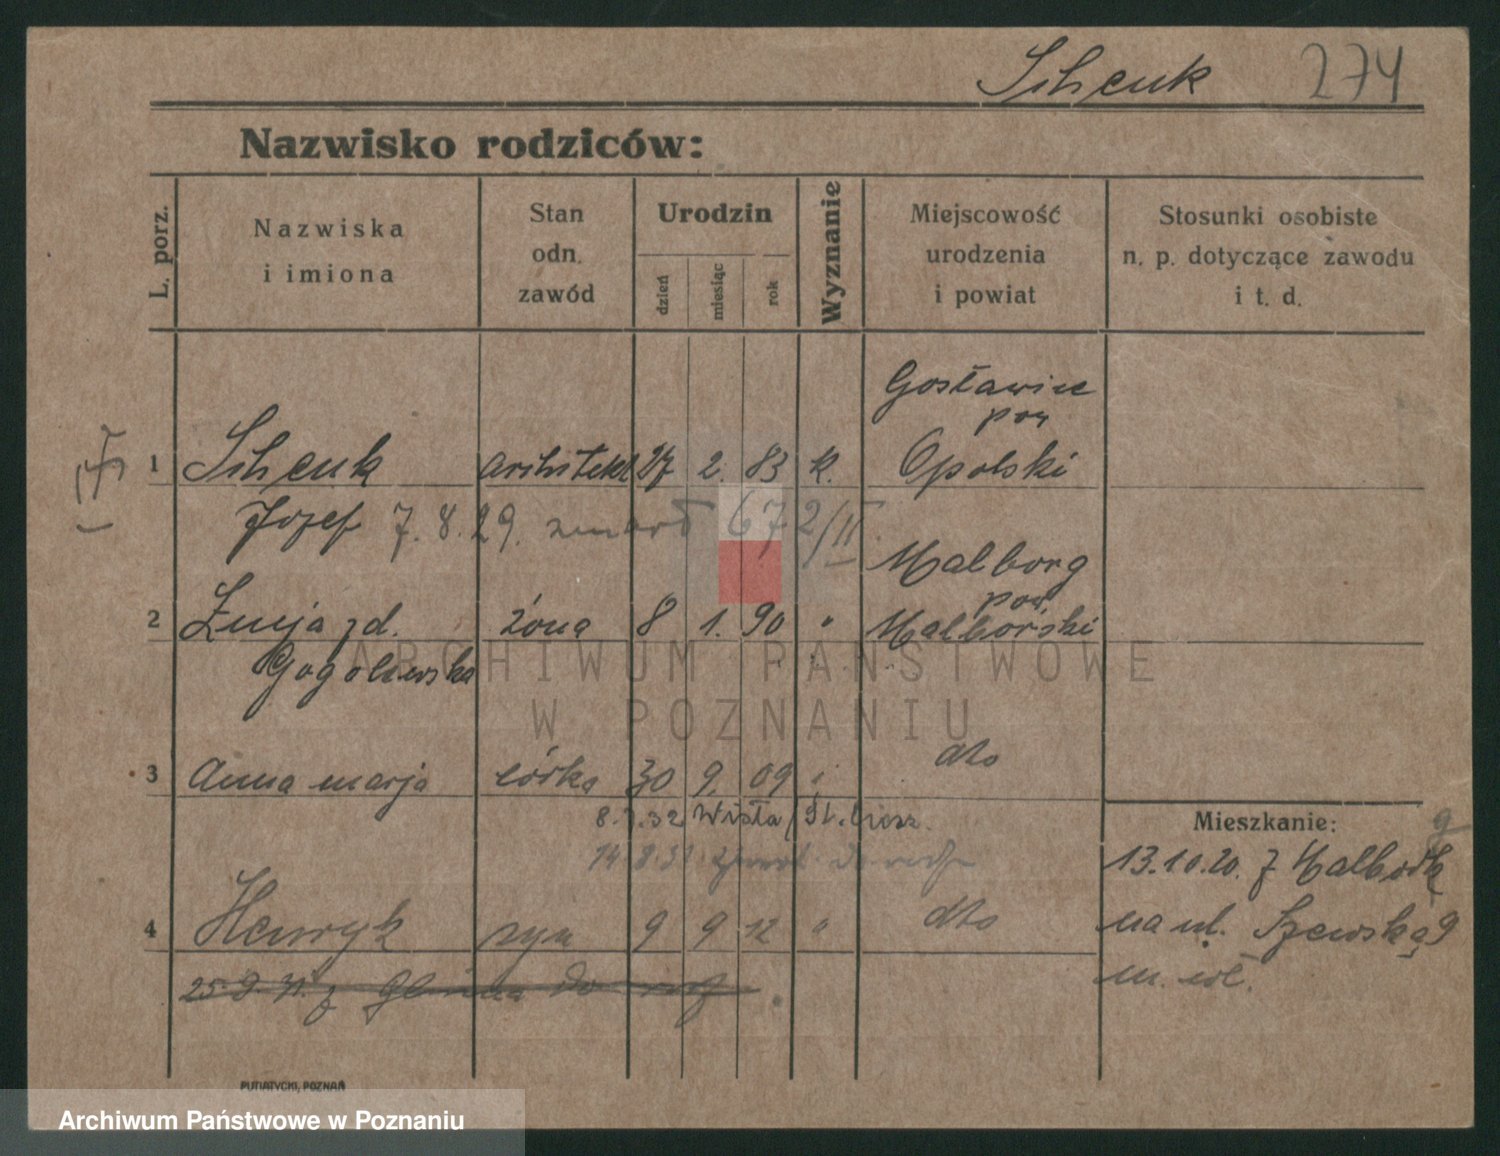 274
Nazwisko rodziców:
L. porz.
Nazwiska
i imiona
Stan
odn.
zawód
Urodzin
dzień
miesiąc
rok
Wyznanie
Miejscowość
urodzenia
i powiat
Stosunki osobiste
n. p. dotyczące zawodu
i t. d.
Gosławice
pow
1 architekt 27 2. 83 k. Opolski
Józef 7.8.29. zmarł 672/II.
Malborg
pow.
2 Łucja zd. żona 8 1. 90 " Malborski
Gogolewska
ARCHIWUM PAŃSTWOWE
W POZNANIU
dto
3 Anna marja córka 30 9. 09 "
Wisła
Mieszkanie:
13.10.20. z Malborka
dto
4 Henryk syn 9 9 12 "
na ul. Szewską 9
m. wł.
25.9.31. z
PUTIATYCKI, POZNAŃ
Archiwum Państwowe w Poznaniu